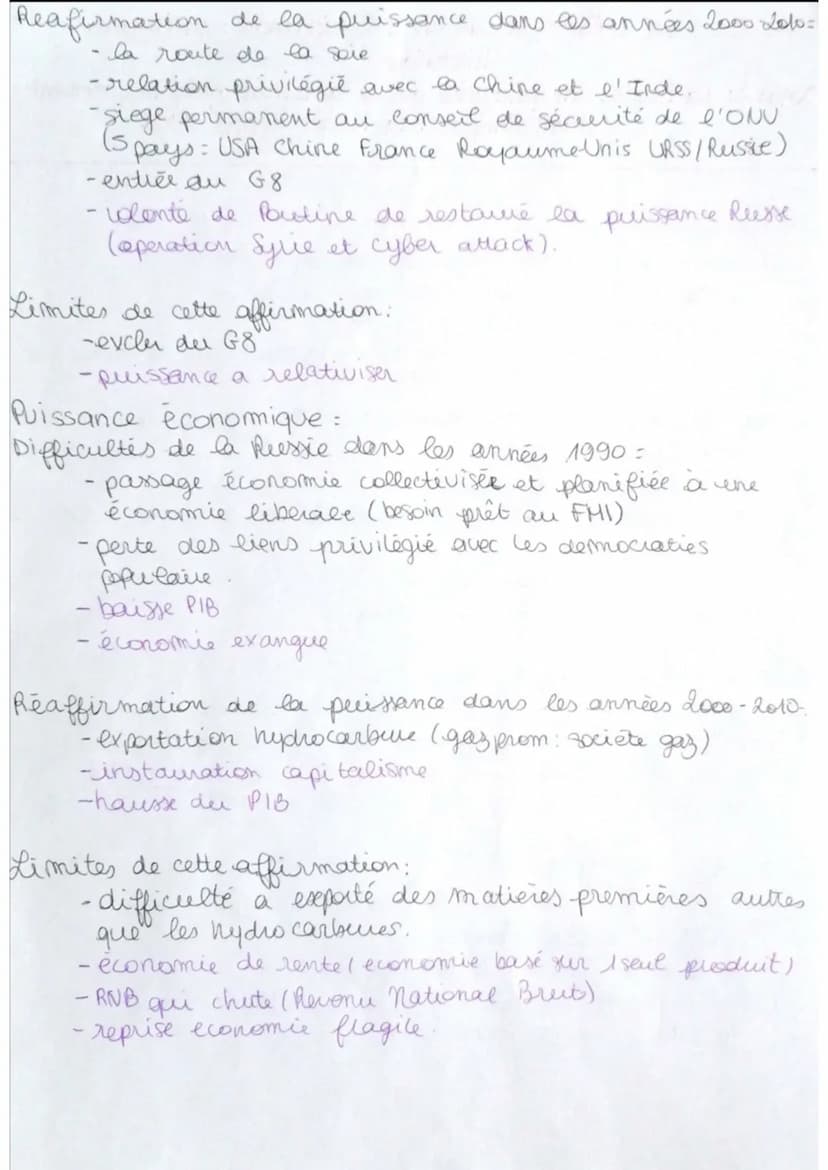 Reafirmation de la puissance dans les années 2000-2010:
- la route de la soie
- relation privilégié avec la Chine et l'Inde
- siege permanent au conseil de sécurité de l'ONU
(5 pays: USA Chine France Royaume-Unis URSS/Russie)
- entrée au G8
- volonté de Poutine de restauré la puissance Russe
(operation Syrie et cyber attack).
Limites de cette affirmation:
- exclu du G8
- puissance a relativiser
Puissance économique:
Difficultés de la Russie dans les années 1990:
- passage économie collectivisée et planifiée à une
économie liberale (besoin prêt au FMI)
- perte des liens privilégié avec les democraties
populaire.
- baisse PIB
- économie exangue
Réaffirmation de la puissance dans les années 2000-2010.
- exportation hydrocarbure (gazprom: société gaz)
- instauration capitalisme
- hausse du PIB
Limites de cette affirmation:
- difficulté a exporté des matières premières autres
que les hydrocarbures.
- économie de rente (economie basé sur 1 seul produit)
- RNB qui chute (Revenu National Brut)
- reprise economie fragile.